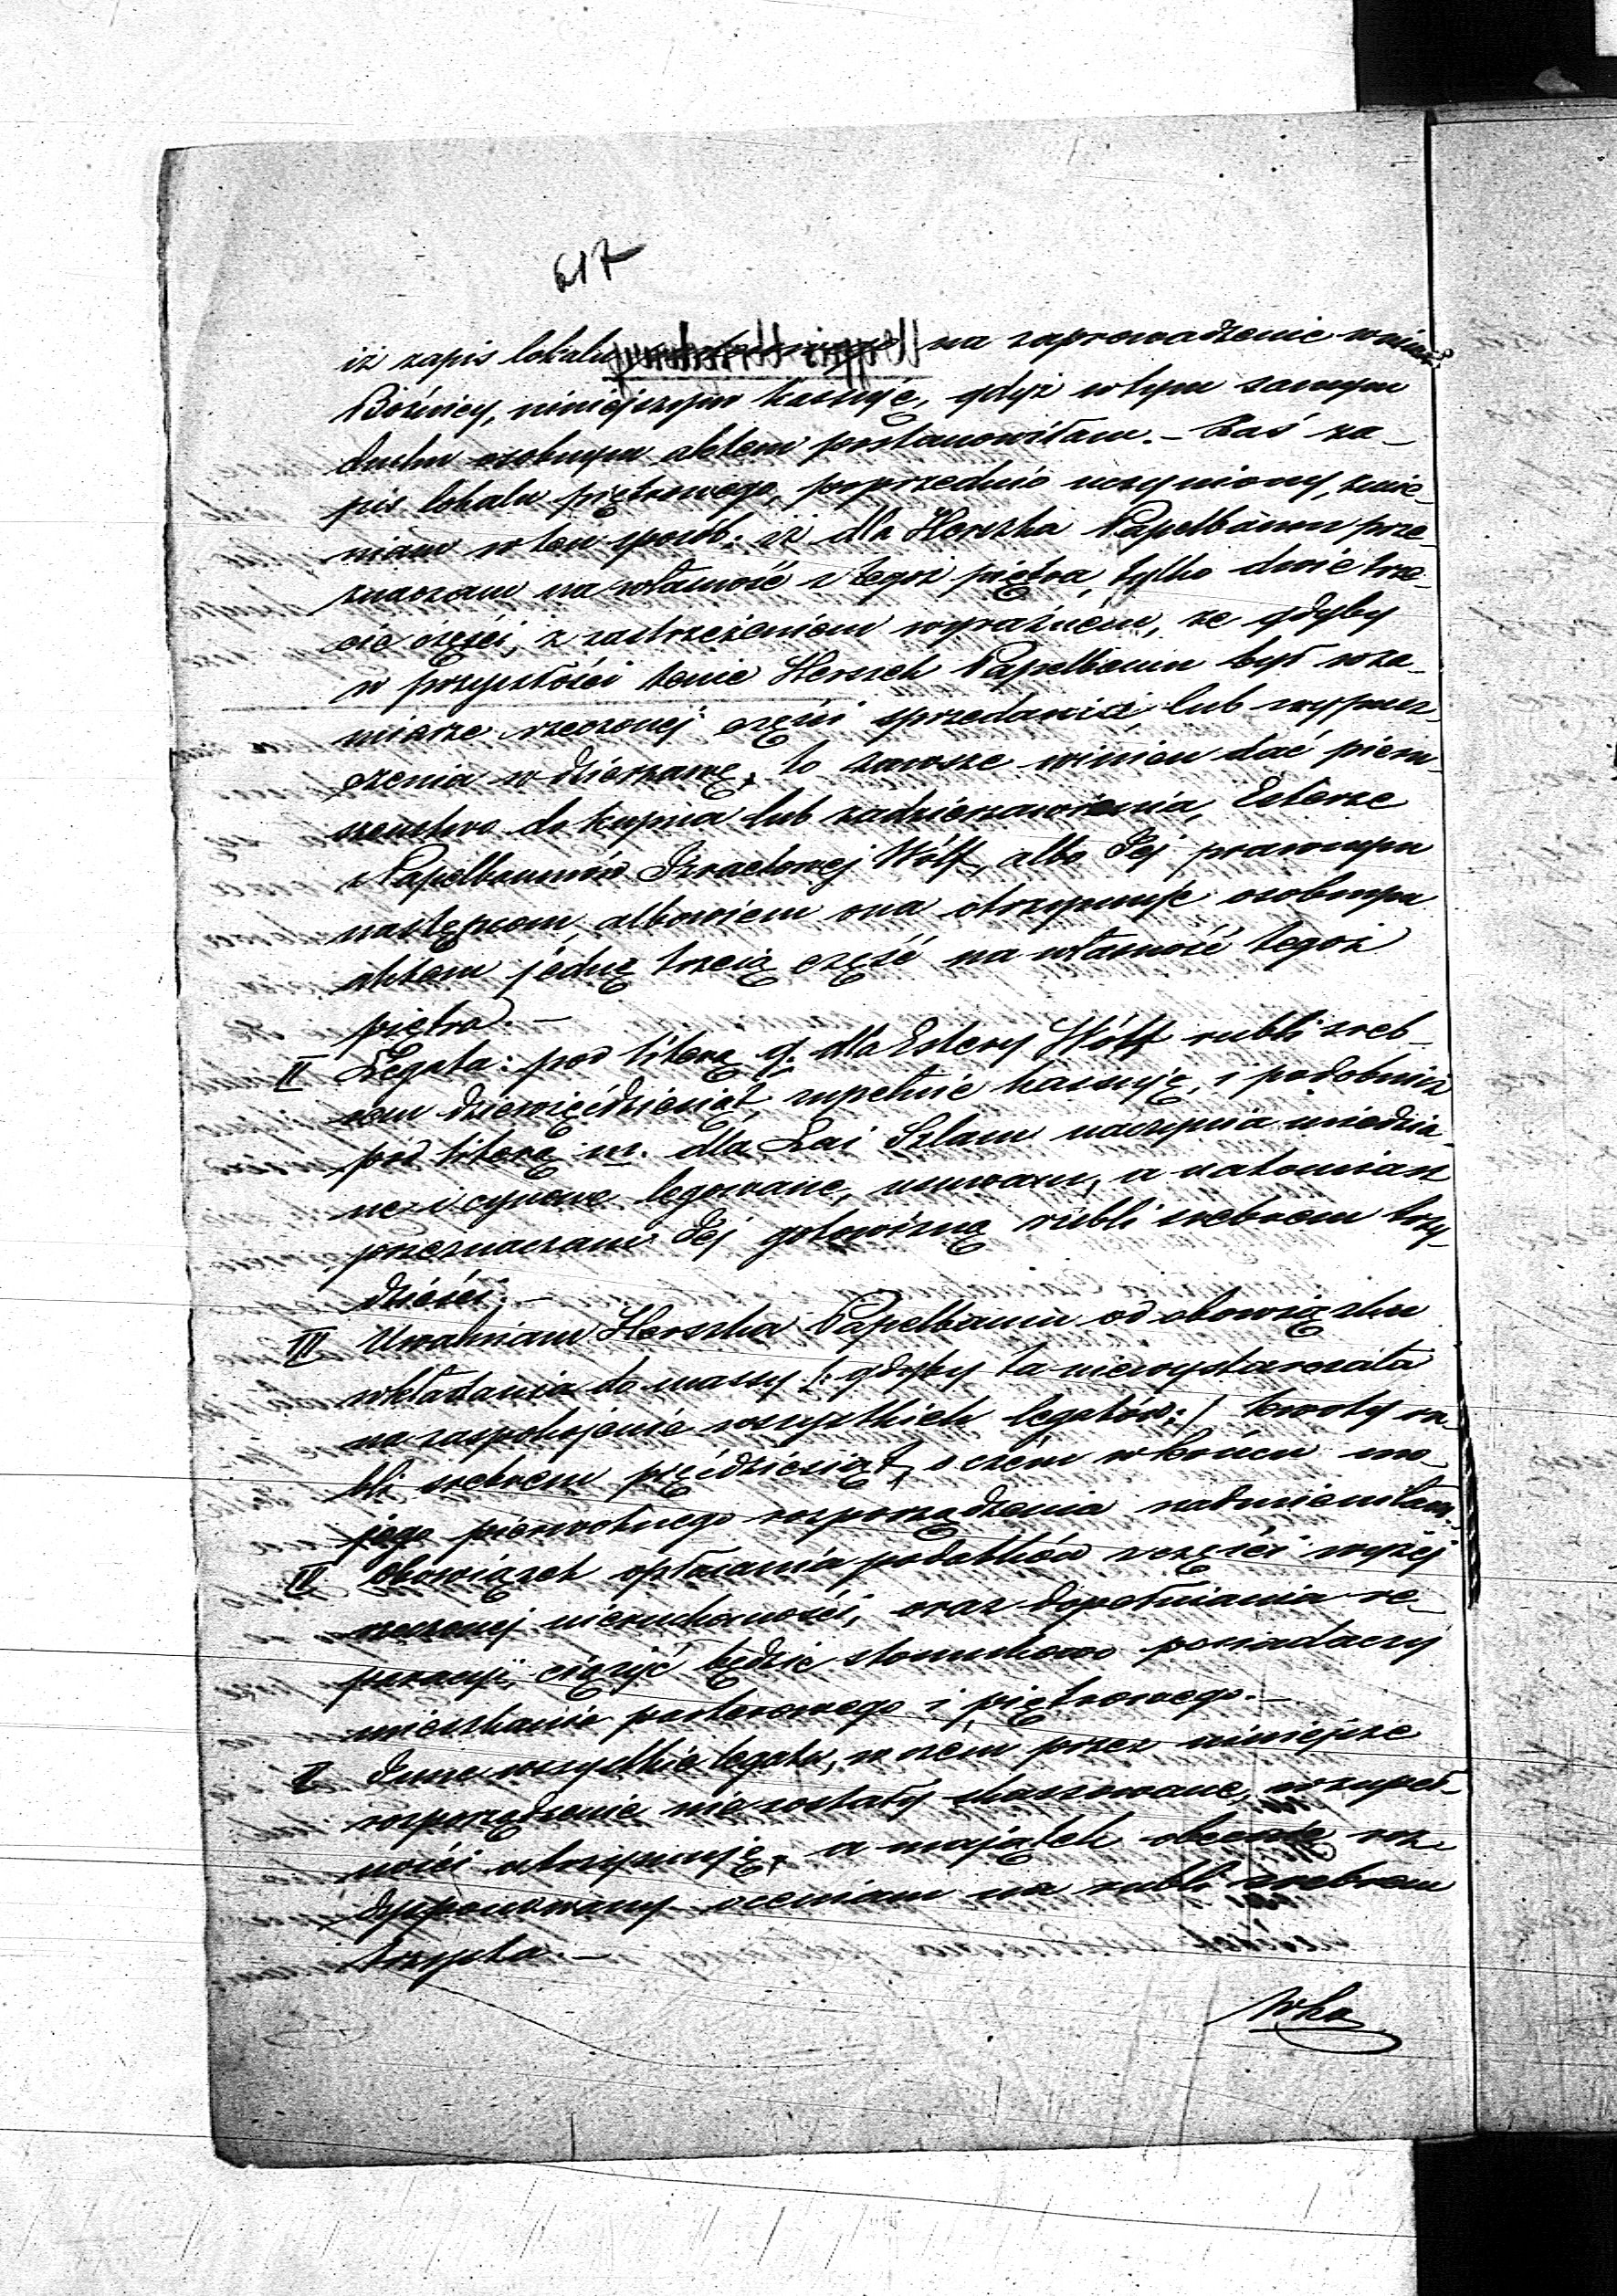 617
iż zapis lokalu na zaprowadzenie w nim
Bóźnicy, niniejszym kassuję, gdyż w tym samym
duchu osobnym aktem postanowiłam. – Zaś za-
pis lokalu piętrowego, poprzednio uczyniony, zmie-
niam w ten sposób: iż dla Herszka Papelbaum prze-
znaczam na własność z tegoż piętra, tylko dwie trze-
cie części, z zastrzeżeniem wyraźnem, że gdyby
w przyszłości tenże Herszek Papelbaum był w za-
miarze rzeczonej części sprzedania, lub wypusz-
czenia w dzierżawę, to zawsze winien dać pierw-
szeństwo do kupna lub zadzierżawienia, Esterze
z Papelbaumów Izraelowej Wólf, albo Jej prawnym
następcom, albowiem ona otrzymuje osobnym
aktem jedną trzecią część na własność tegoż
piętra. –
II Legata: pod literą g. dla Estery Wólf rubli sreb-
rem dziewięćdziesiąt, zupełnie kassuję, i podobnież
pod literą m. dla Łai Szlam naczynia miedzia-
ne i cynowe legowane, usuwam, a natomiast
przeznaczam Jej gotowizną rubli srebrem trzy-
dzieści. –
III Uwalniam Herszka Papelbaum od obowiązku
wkładania do massy /: gdyby ta niewystarczała
na zaspokojenie wszystkich legatów :/ kwoty ru-
bli srebrem pięćdziesiąt, o czém w końcu mo-
jego pierwotnego rozporządzenia nadmieniłam.
IV Obowiązek opłacania podatków z części wyżéj
rzeczonej nieruchomości, oraz dopełniania re-
paracyi, ciążyć będzie stosunkowo posiadaczy
mieszkania parterowego i piętrowego. –
V Inne wszystkie legata, w czem przez niniejsze
rozporządzenie nie zostały skassowane, w zupeł-
ności utrzymuję, a majątek obecnie roz-
dysponowany oceniam na rubli srebrem
trzysta. –